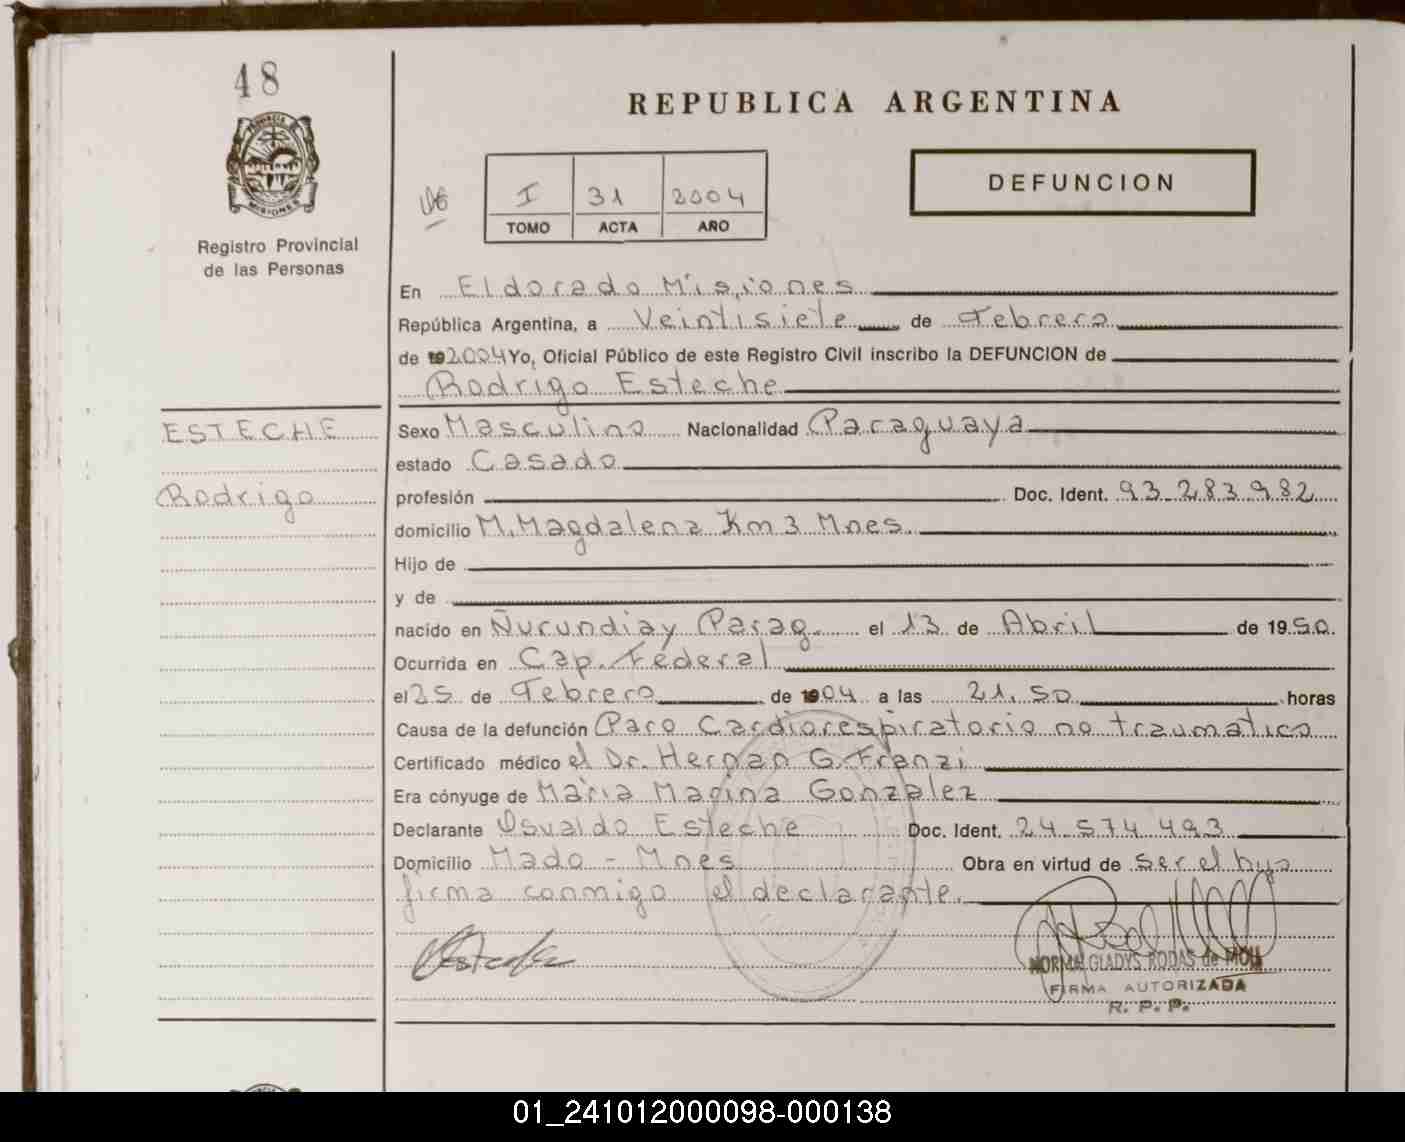 48
PROVINCIA DE
MISIONES
Registro Provincial
de las Personas
REPUBLICA ARGENTINA
I 31 2004
TOMO ACTA AÑO
DEFUNCION
En Eldorado Misiones
República Argentina, a Veintisiete de Febrero
de 192004 Yo, Oficial Público de este Registro Civil inscribo la DEFUNCION de
Rodrigo Esteche
ESTECHE
Rodrigo
Sexo Masculino Nacionalidad Paraguaya
estado Casado
profesión Doc. Ident. 93.283.982
domicilio M. Magdalena Km 3 Mnes.
Hijo de
y de
nacido en Ñurundiay Parag. el 13 de Abril de 1950.
Ocurrida en Cap. Federal
el 25 de Febrero de 1904 a las 21.50 horas
Causa de la defunción Paro Cardiorespiratorio no traumatico
Certificado médico el Dr. Hernan G. Franzi
Era cónyuge de Maria Marina Gonzalez
Declarante Osvaldo Esteche Doc. Ident. 24.574.493
Domicilio Mado - Mnes Obra en virtud de ser el hijo
firma conmigo el declarante.
NORMA GLADYS RODAS de MOLL
FIRMA AUTORIZADA
R. P. P.
01_241012000098-000138